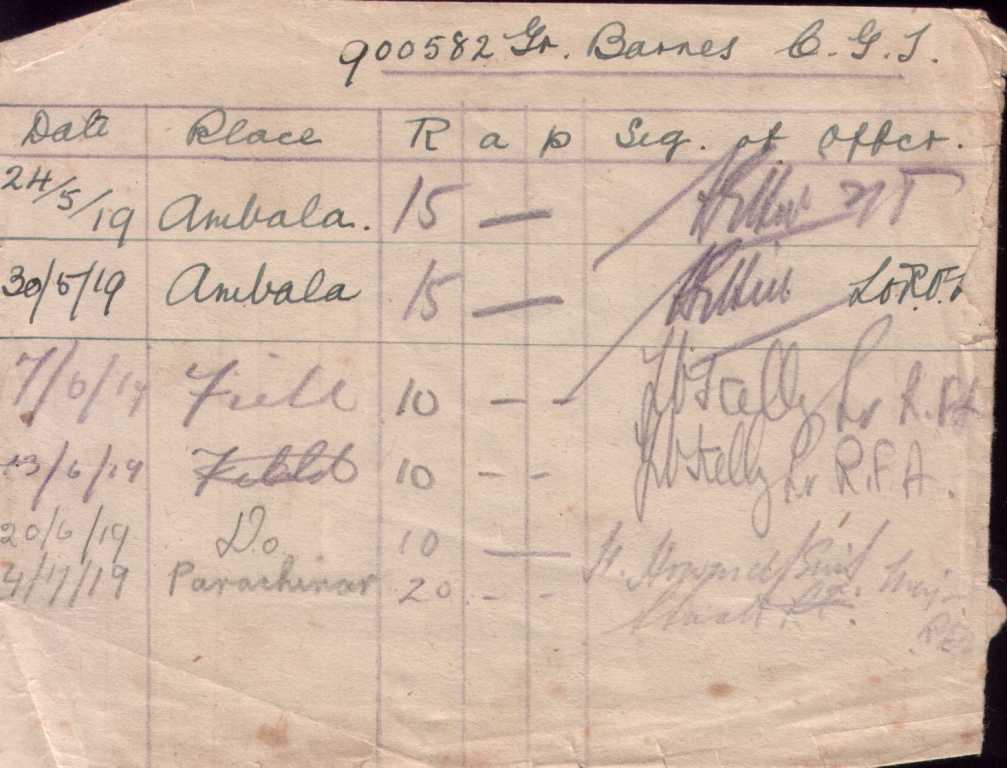 900582 Gr. Barnes C. G. S.
Date Place R a p Sig. of Offcr.
24/5/19 Ambala. 15 —
30/5/19 Ambala 15 — Lt R.F.A
7/6/19 Field 10 - - Kelly Lt R.F.A
13/6/19 Field 10 - - Kelly Lt R.F.A.
20/6/19 Do 10 —
4/7/19 Parachinar 20 - - Maj